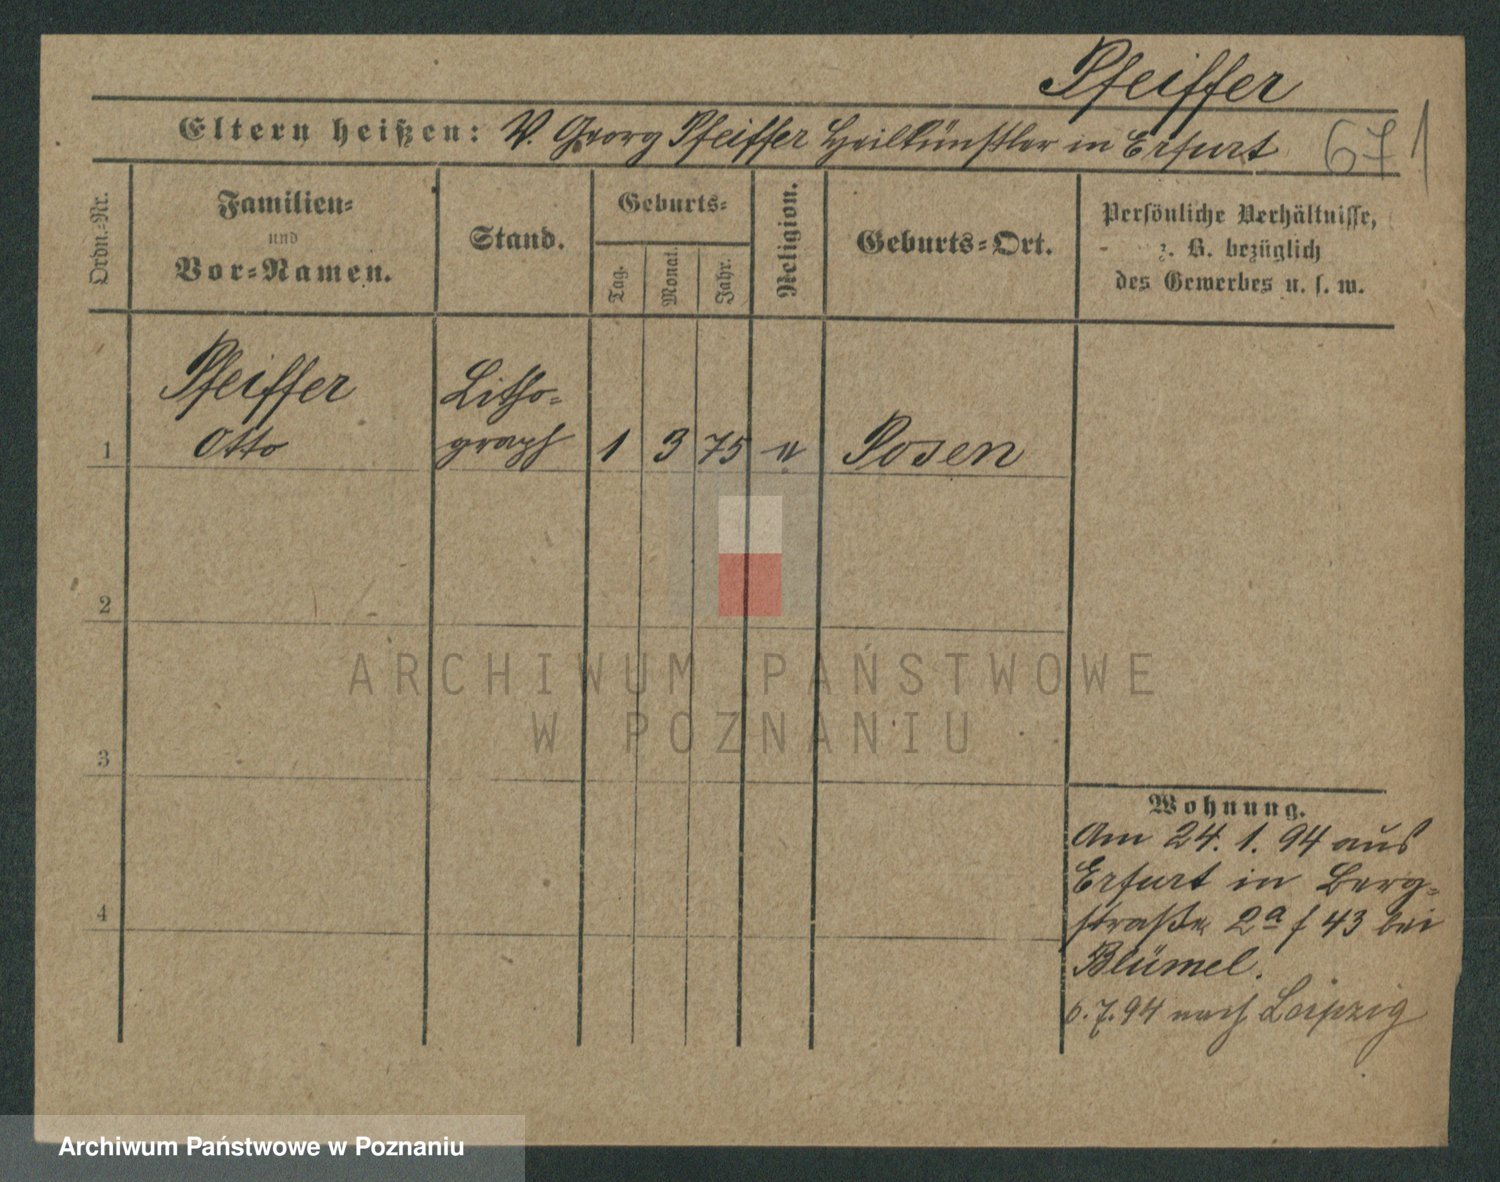 Pfeiffer
Eltern heißen: V. Georg Pfeiffer Heilkünstler in Erfurt 671
Ordn.-Nr.
Familien-
und
Vor-Namen.
Stand.
Geburts-
Tag.
Monat.
Jahr.
Religion.
Geburts-Ort.
Persönliche Verhältnisse,
z. B. bezüglich
des Gewerbes u. s. w.
Pfeiffer Litho-
1 Otto graph 1 3 75 Posen
2
ARCHIWUM PAŃSTWOWE
W POZNANIU
3
Wohnung.
Am 24. 1. 94 aus
Erfurt in Berg-
4 straße 2a f 43 bei
Blümel.
6.7.94 nach Leipzig
Archiwum Państwowe w Poznaniu